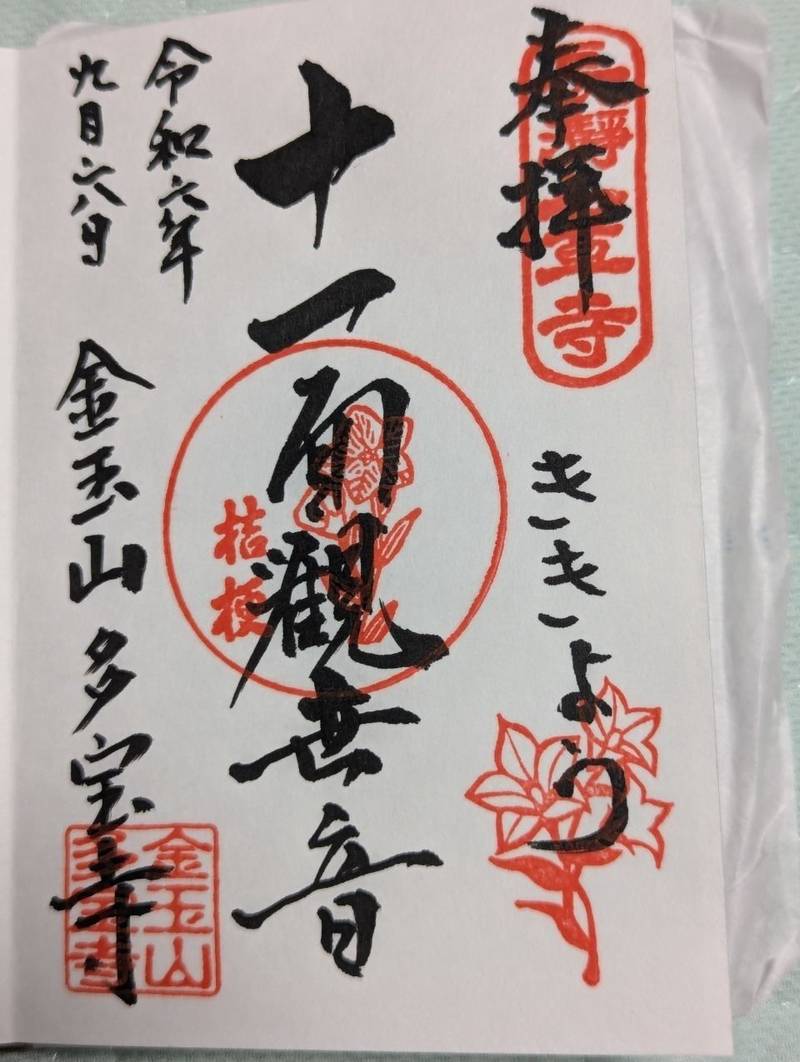 奉拝
長瀞七草寺
ききょう
十一面觀世音
桔梗
令和六年
九月 八日
金玉山多宝寺
金玉山
多宝寺